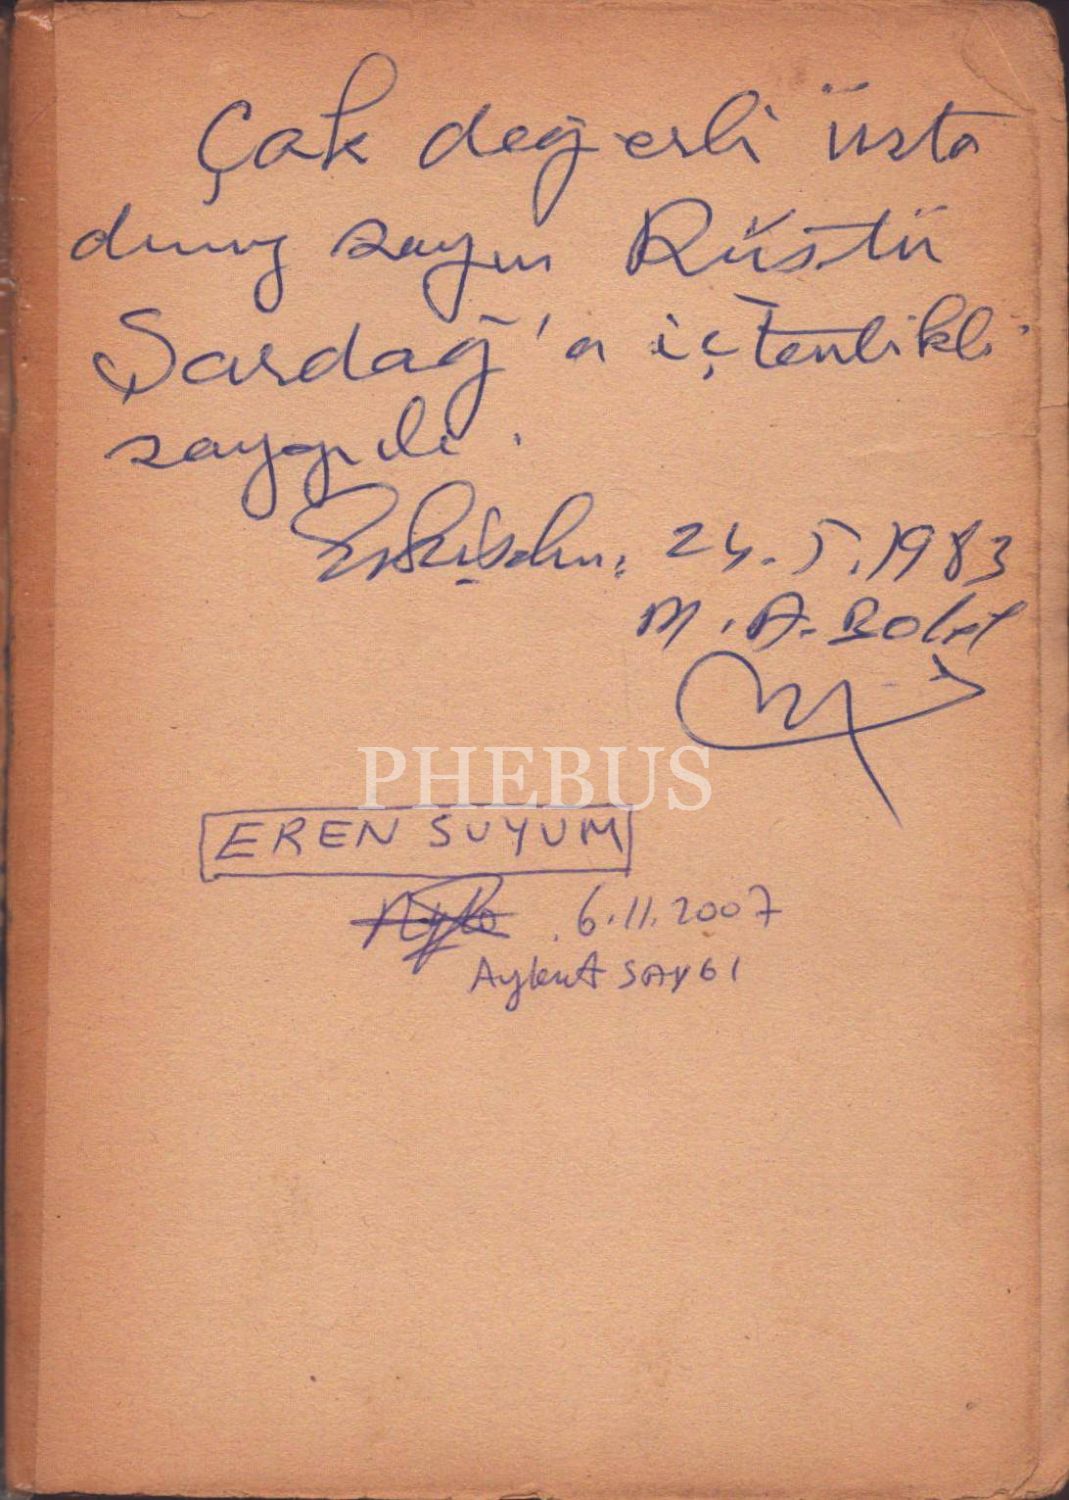 Çok değerli üsta
dımız sayın Rüştü
Şardağ'a içtenlikli
saygı ile.
Eskişehir, 24.5.1983
M.A. Bolat
PHEBUS
EREN SUYUM
6.11.2007
Aykut SAYGI